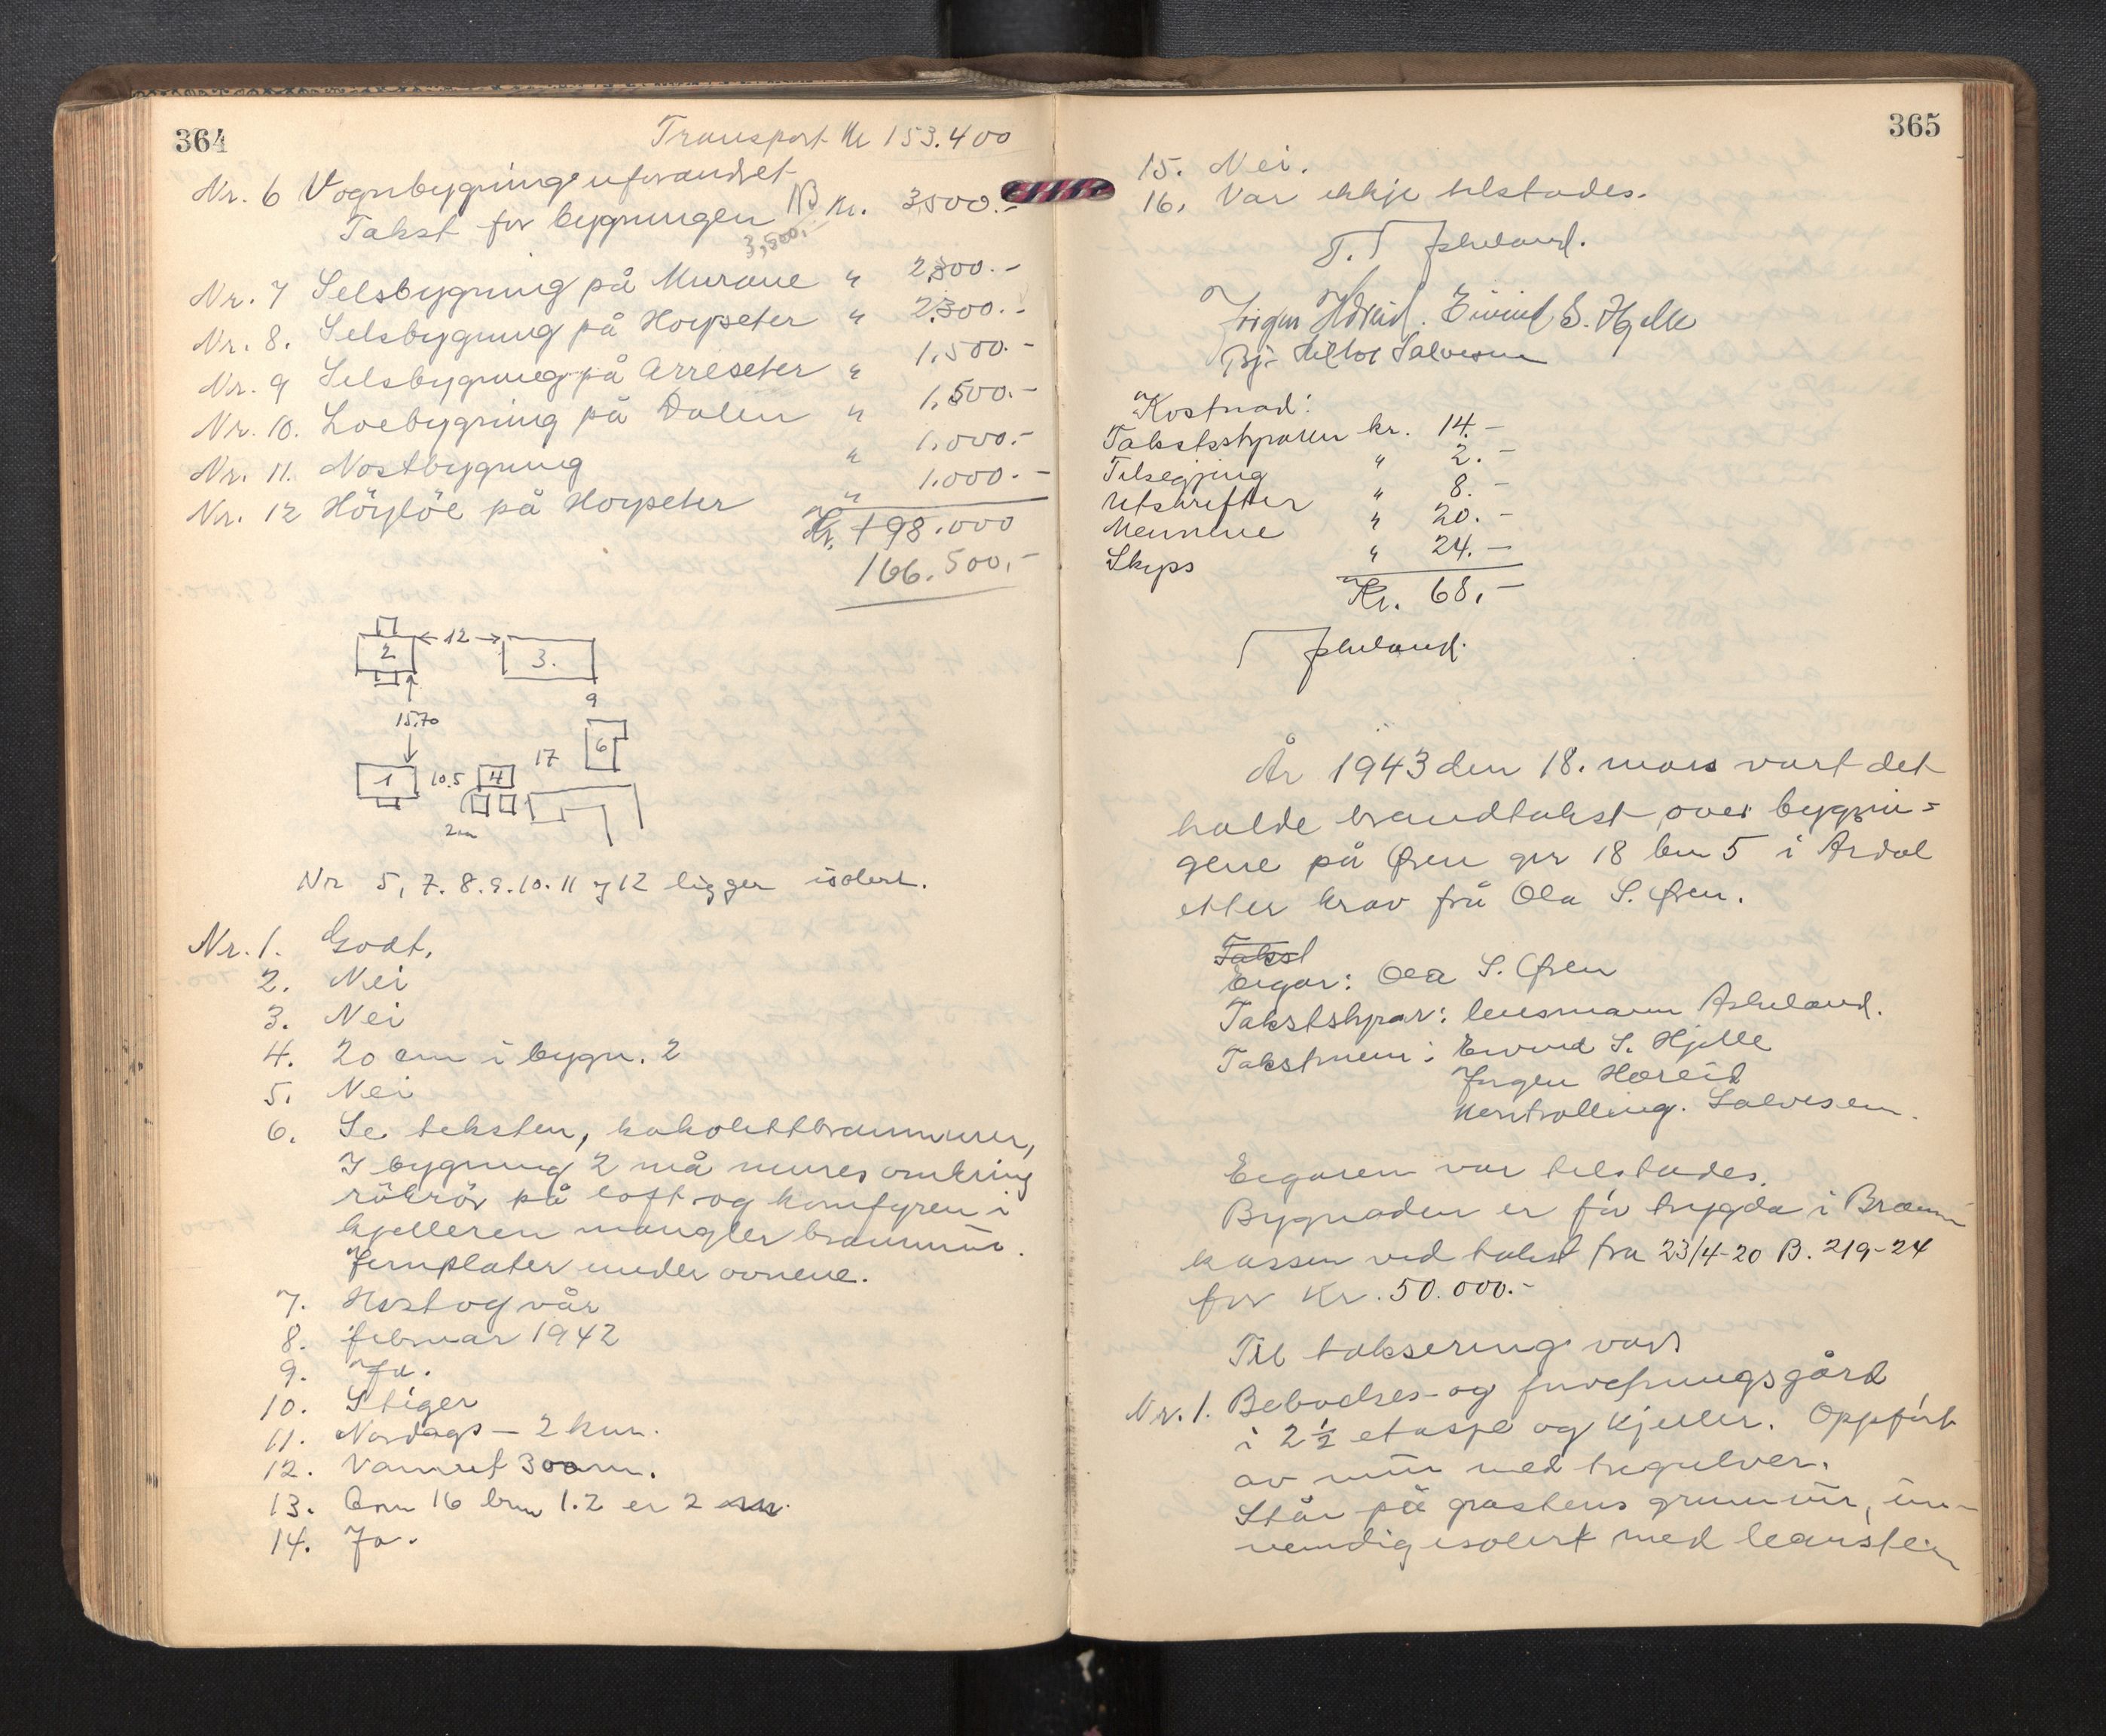 364
Transport kr 153.400
Nr. 6 Vognbygning uforandret
Takst for bygningen NB kr. 3,500.-
3,500,-
Nr. 7 Selsbygning på Murane " 2,300.-
Nr. 8. Selsbygning på Hoyseter " 2,300.-
Nr. 9 Selsbygning på Arreseter " 1,500.-
Nr. 10. Loebygning på Dalen " 1,500.-
Nr. 11. Nostbygning " 1.000.-
Nr. 12 Höyløe på Hoyseter " 1.000.-
Kr. 198.000
166.500,-
2 ←12→ 3.
9
15.70
6
17
1 10.5 4
2m
Nr 5, 7. 8. 9. 10. 11 og 12 ligger isolert.
Nr. 1. Godt.
2. Nei
3. Nei
4. 20 cm i bygn. 2
5. Nei
6. Se teksten, kakolettbrannmurer,
I bygning 2 må mures omkring
rökrör på loft og komfyren i
kjelleren mangler brannmur.
Jernplater under ovnene.
7. Høst og vår
8. februar 1942
9. Ja.
10. Stiger
11. Nordags - 2 km.
12. Vannret 300 m.
13. Gnr 16 brn 1.2 er 2
14. Ja.
365
15. Nei.
16. Var ikkje tilstades.
T. T Askeland.
Jørgen Hæreid. Eivind S. Hjelle
Salvesen
Kostnad:
Takstskyraren kr. 14.-
Tilsegjing " 2.-
Utskrifter " 8.-
Mennene " 20.-
Skyss " 24.-
Kr. 68,-
T Askeland.
År 1943 den 18. mars vart det
halde brandtakst over bygnin=
gene på Øren gnr 18 bnr 5 i Årdal
etter krav frå Ola S. Øren.
Takst
Eigar: Ola S. Øren
Takstskyrar: lensmann Askeland.
Takstmenn: Eivind S. Hjelle
Jørgen Hæreid
Kontrolling. Salvesen.
Eigaren var tilstades.
Bygnaden er för trygda i Brann
kassen ved takst fra 23/4-20 B. 219-24
for kr. 50.000.-
Til taksering vart
Nr. 1. Beboelses- og forretningsgård
i 2½ etasje og kjeller. Oppfört
av mur med tregulver.
Står på gråsteins grunnmur, inn-
vendig isolert med leirstein